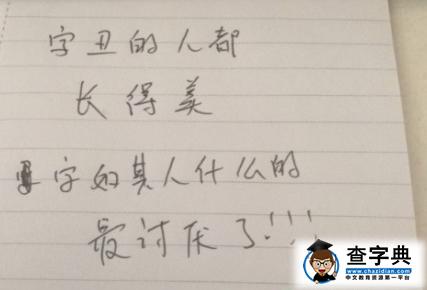 字丑的人都
长得美
字如其人什么的
最讨厌了!!!
查字典
www.chazidian.com
中文教育资源第一平台